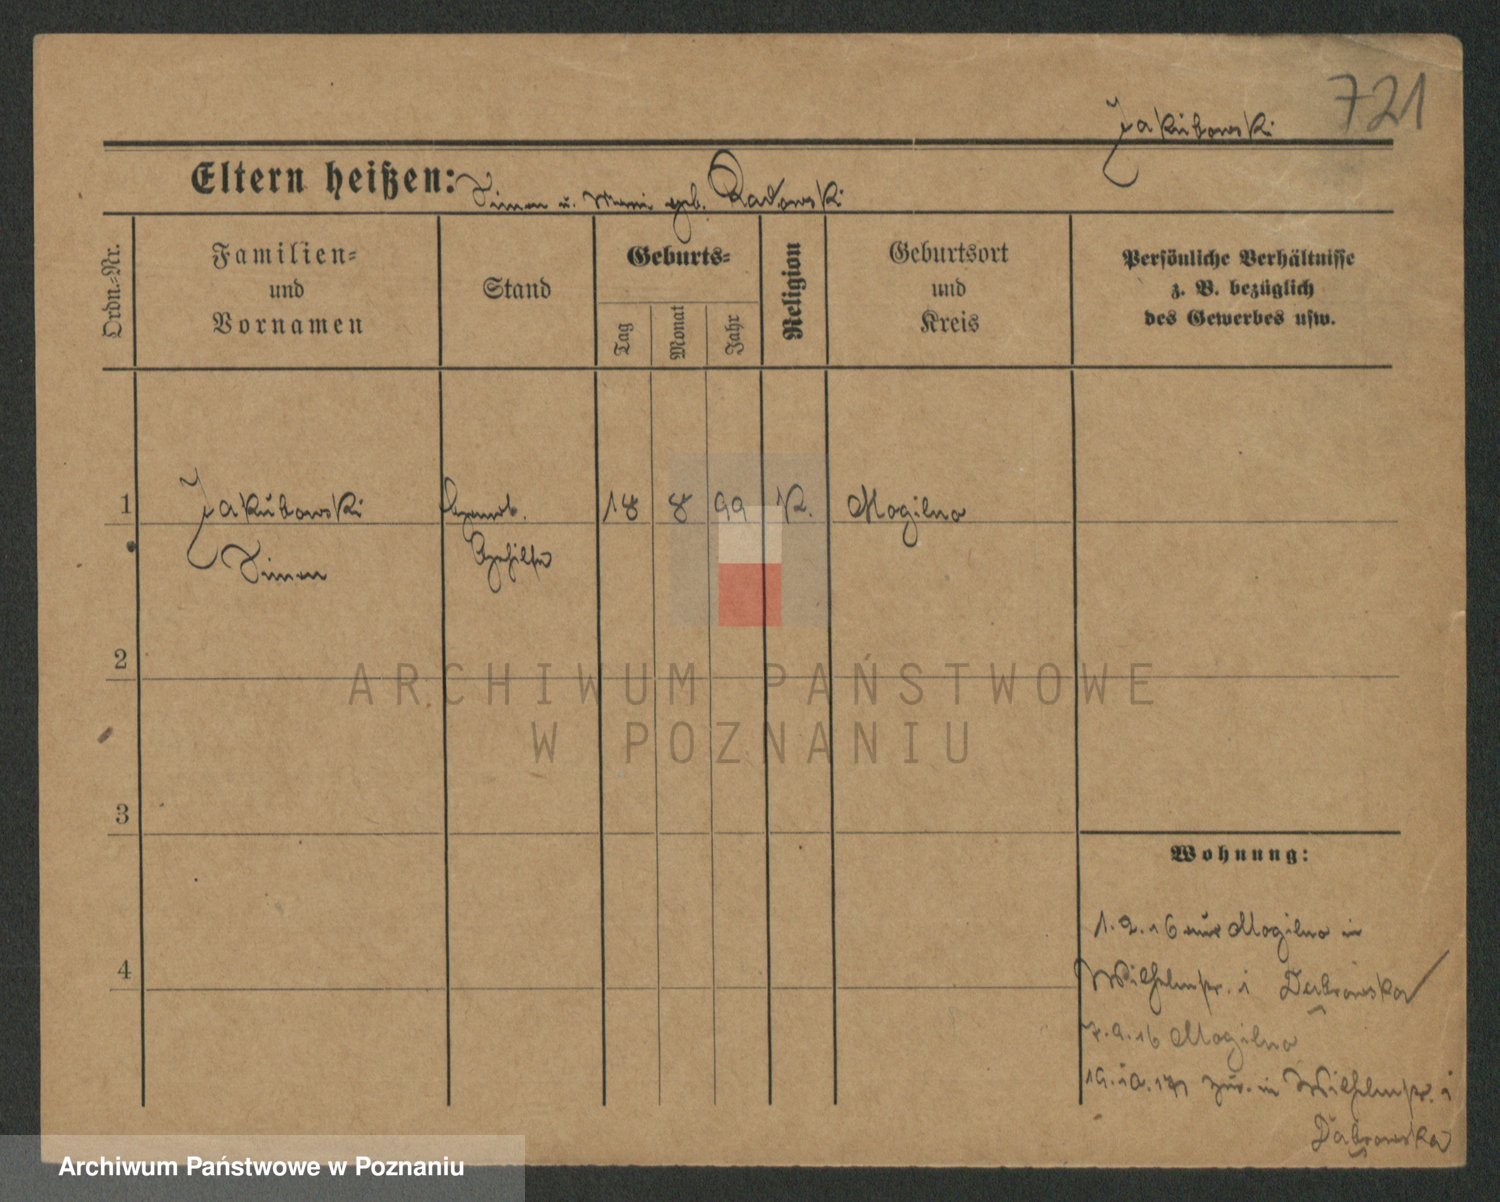 721
Jakubowski
Eltern heißen: Simon u. Marie geb. Radowski
Ordn.-Nr.
Familien-
und
Vornamen
Stand
Geburts-
Tag
Monat
Jahr
Religion
Geburtsort
und
Kreis
Persönliche Verhältnisse
z. B. bezüglich
des Gewerbes usw.
1 Jakubowski 18 8 99 K. Mogilno
Simon
Gehilfe
2
ARCHIWUM PAŃSTWOWE
W POZNANIU
3
Wohnung:
4
1.2.16 aus Mogilno in
Wilhelmstr. 1 Dabrowska
7.9.16 Mogilno
19.10.17 zur. in Wilhelmstr. 1
Dabrowska
Archiwum Państwowe w Poznaniu